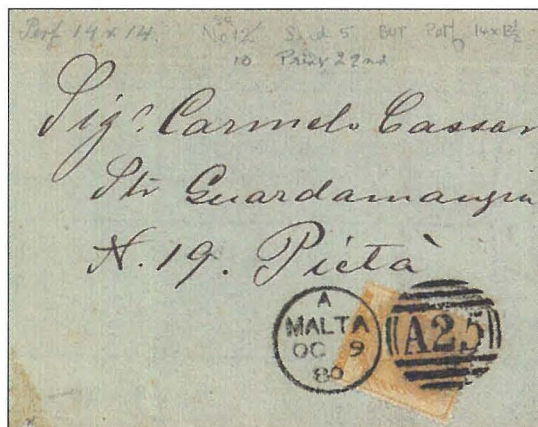 Perf 14 x 14. No 12 S.g. 5 BUT Perf 14 x 13½
10 Prior 22nd
Sigr. Carmelo Cassar
Str Guardamangia
N. 19. Pietà
A
MALTA
OC 9
80
A25